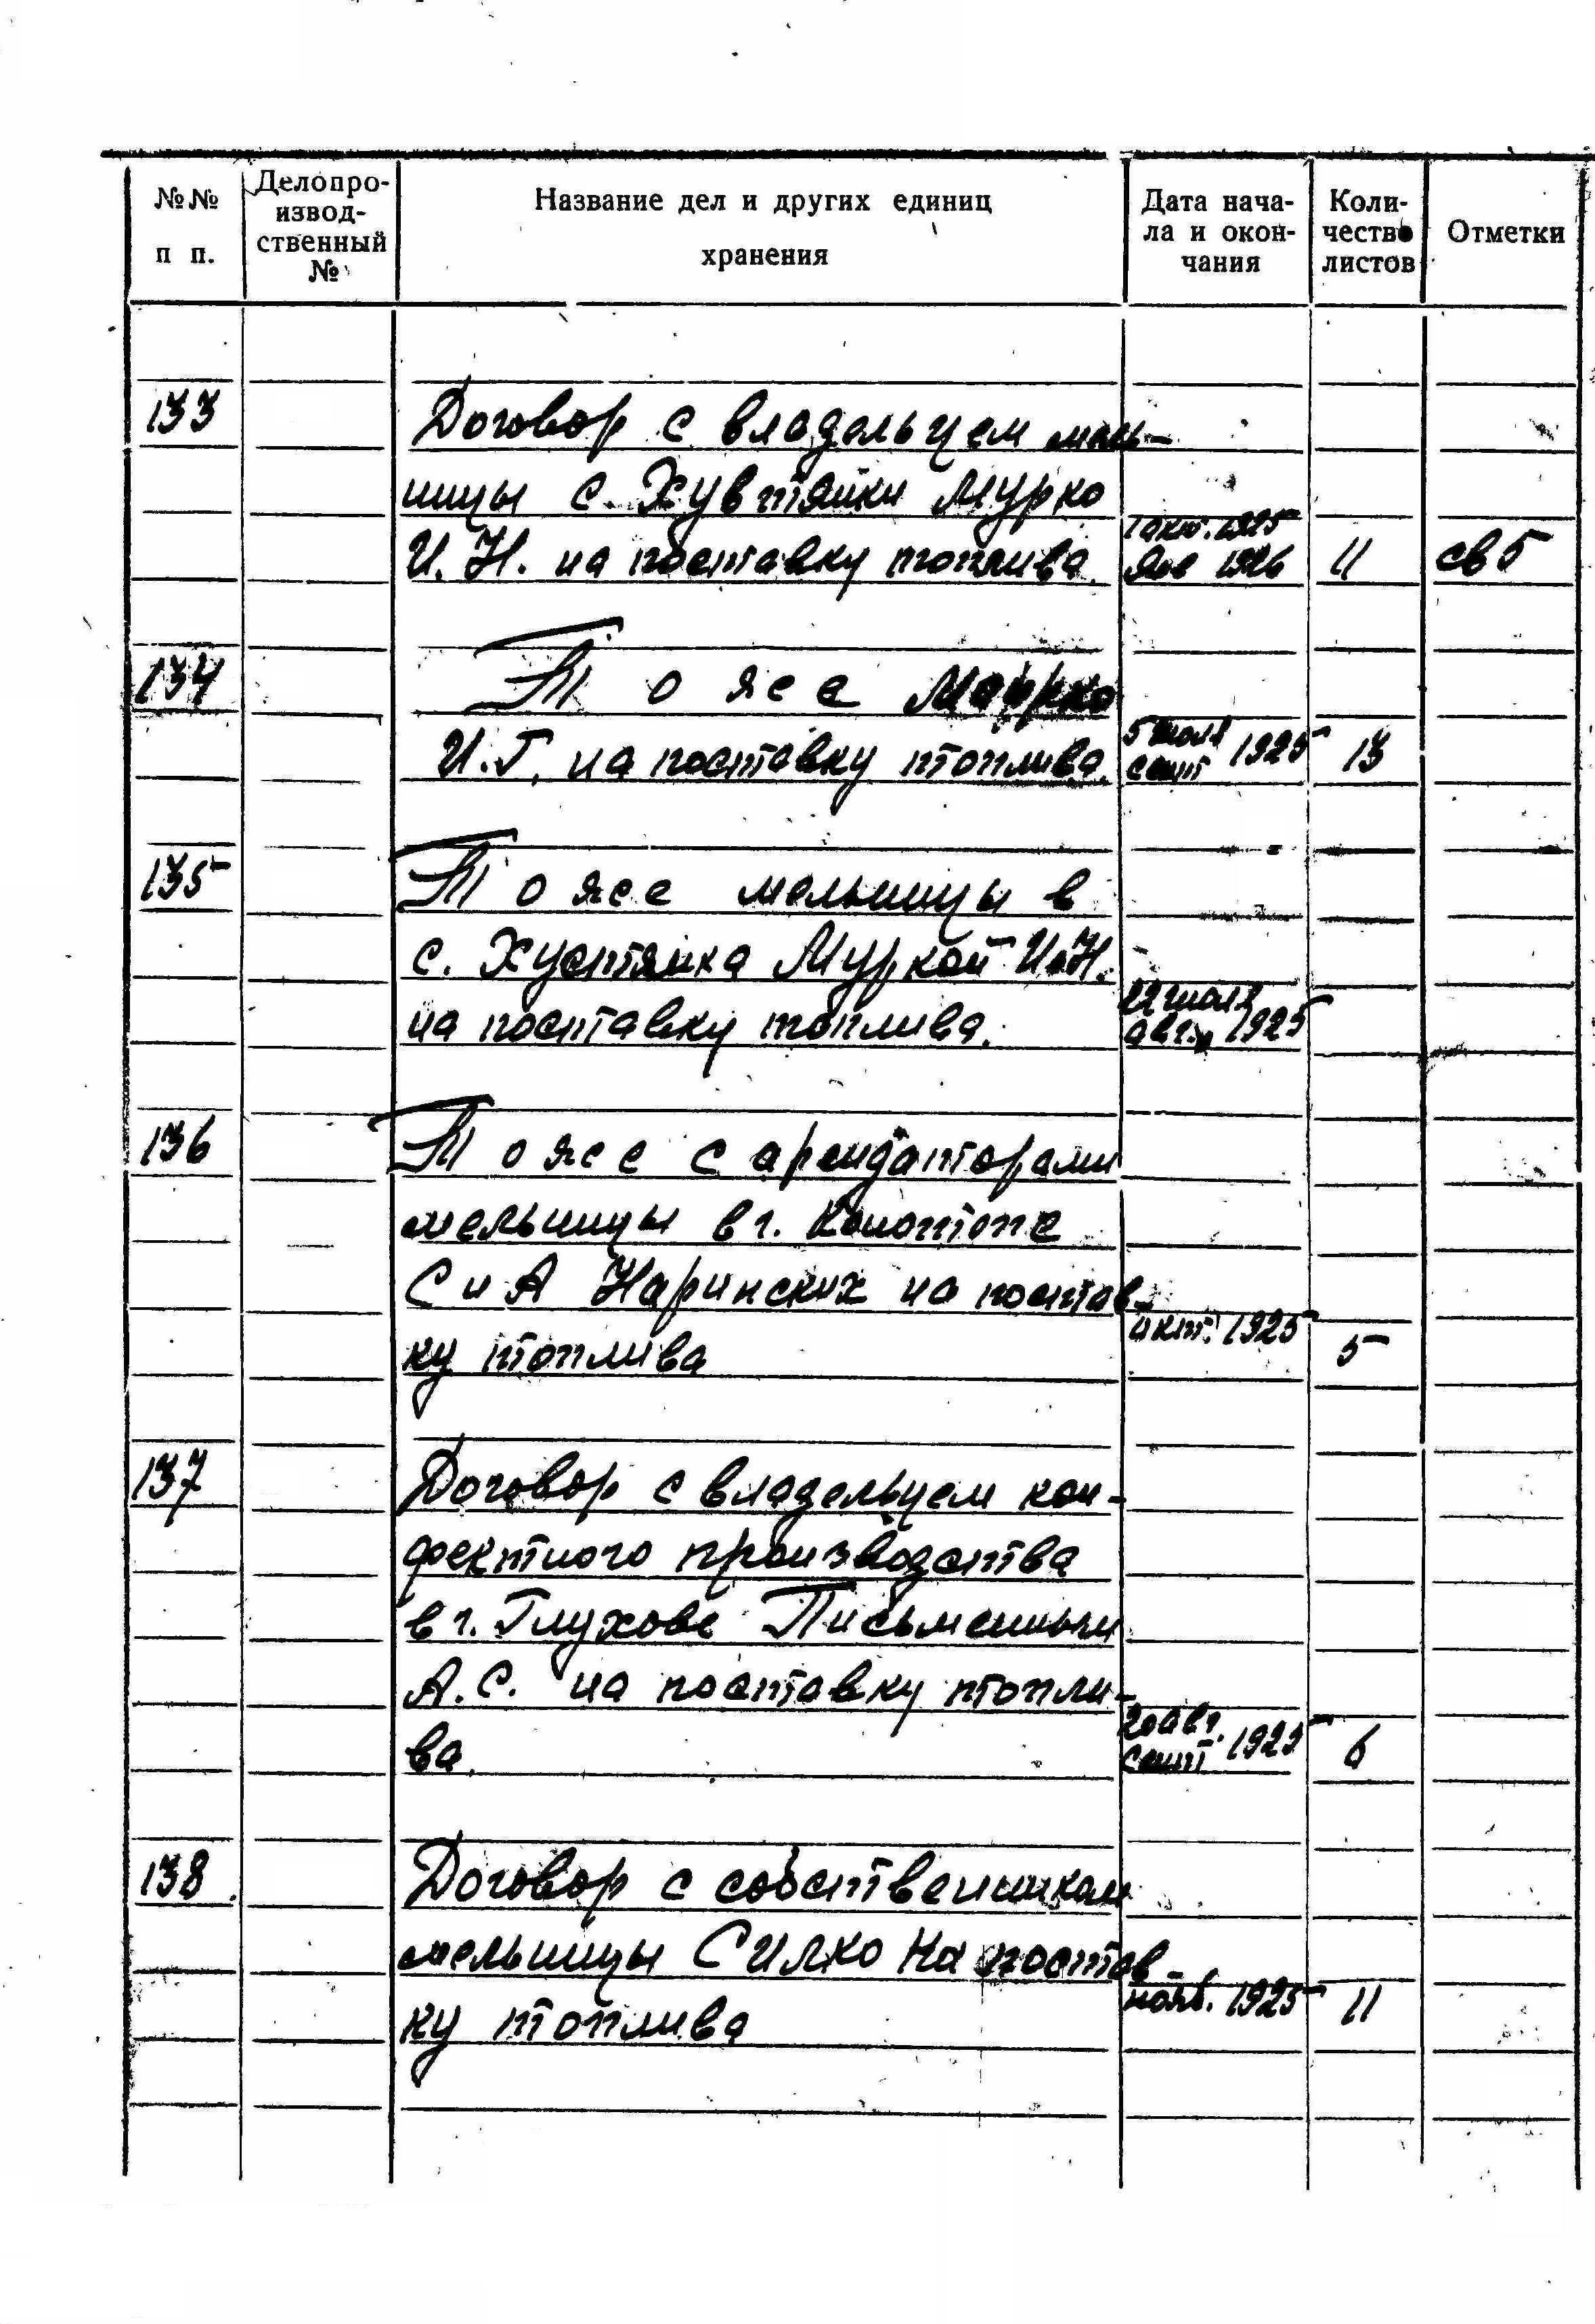 №№ п п.
Делопро-
извод-
ственный
№
Название дел и других единиц
хранения
Дата нача-
ла и окон-
чания
Коли-
чество
листов
Отметки
133 Договор с владельцем мель-
ницы с. Мурко
1 окт. 1925
И.Н. на поставку топлива. янв 1926 11 св 5
134 То же
5 июля
И.Г. на поставку топлива. сент 1925 13
135 То же мельницы в
с. Хустянка Муркой И.Н.
22 июля
на поставку топлива. авг. 1925
136 То же с арендаторами
мельницы в г. Конотопе
С и А Наринских на постав-
окт. 1925
ку топлива 5
137 Договор с владельцем кон-
фектного производства
в г. Глухове Письменным
А.С. на поставку топли-
20 авг.
ва. сент 1925 6
138 Договор с собственником
мельницы Силко на постав-
нояб. 1925 11
ку топлива